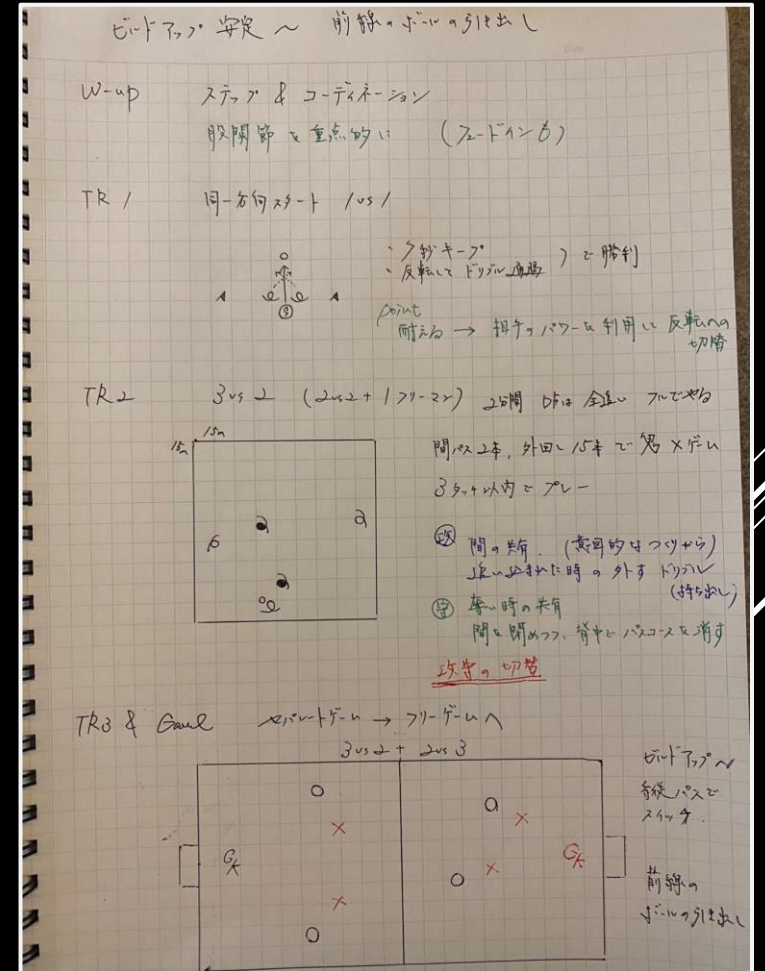 ビルドアップ 安定 〜 前線のボールの引き出し
W-up ステップ & コーディネーション
股関節を重点的に (フェードインも)
TR 1 同一方向スタート 1vs1
・7秒キープ
・反転してドリブル通過 で勝利
point
耐える → 相手のパワーを利用して反転への
切替
TR2 3vs2 (2vs2+1フリーマン) 2分間 DFは全追い フルでやる
15m
15m
間パス2本, 外回し15本で鬼×ゲーム
3タッチ以内でプレー
攻 間の共有.
追い込まれた時の外すドリブル
(持ち出し)
守 奪い時の共有
間を閉めつつ、背中でパスコースを消す
攻守の切替
TR3 & Game セパレートゲーム → フリーゲームへ
3vs2 + 2vs3
GK
GK
ビルドアップ〜
パスで
スイッチ.
前線の
ボールの引き出し